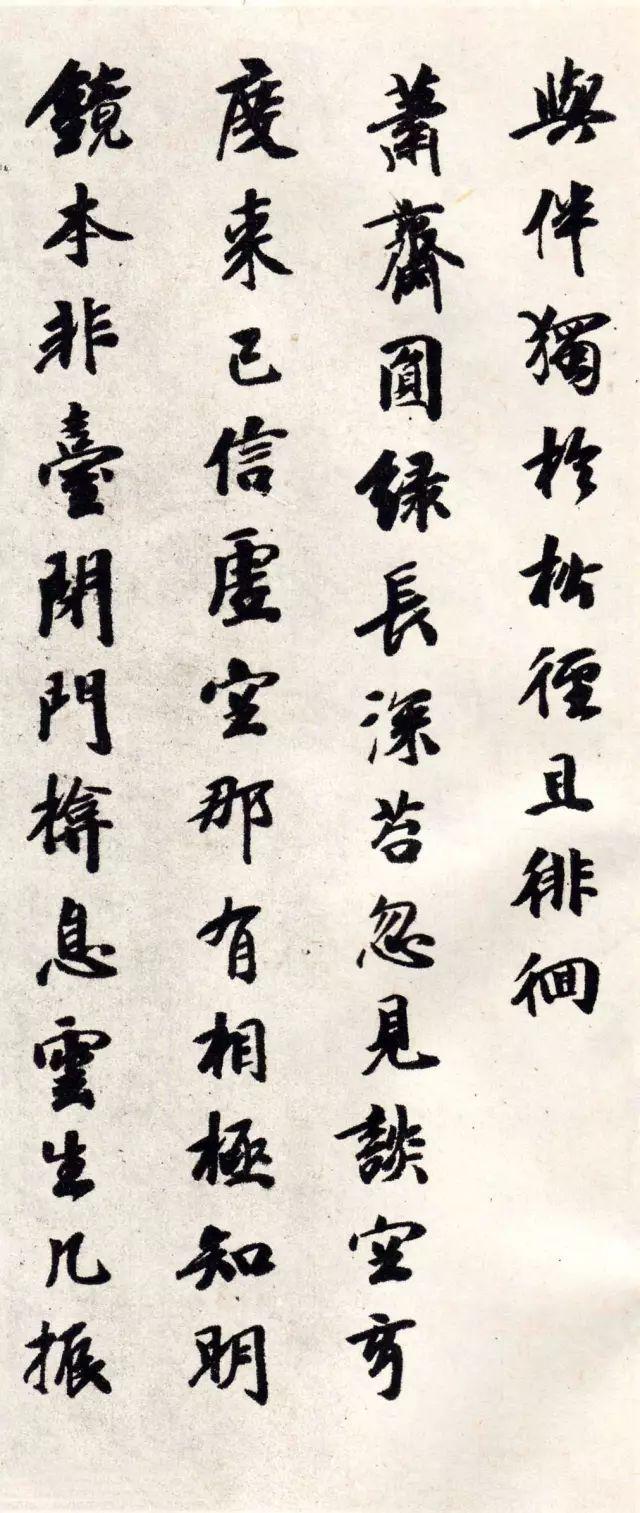 與伴獨於松徑且徘徊
蕭齋圓綠長深苔忽見談空亨
度來已信虛空那有相極知明
鏡本非臺閉門揜息雲生几振